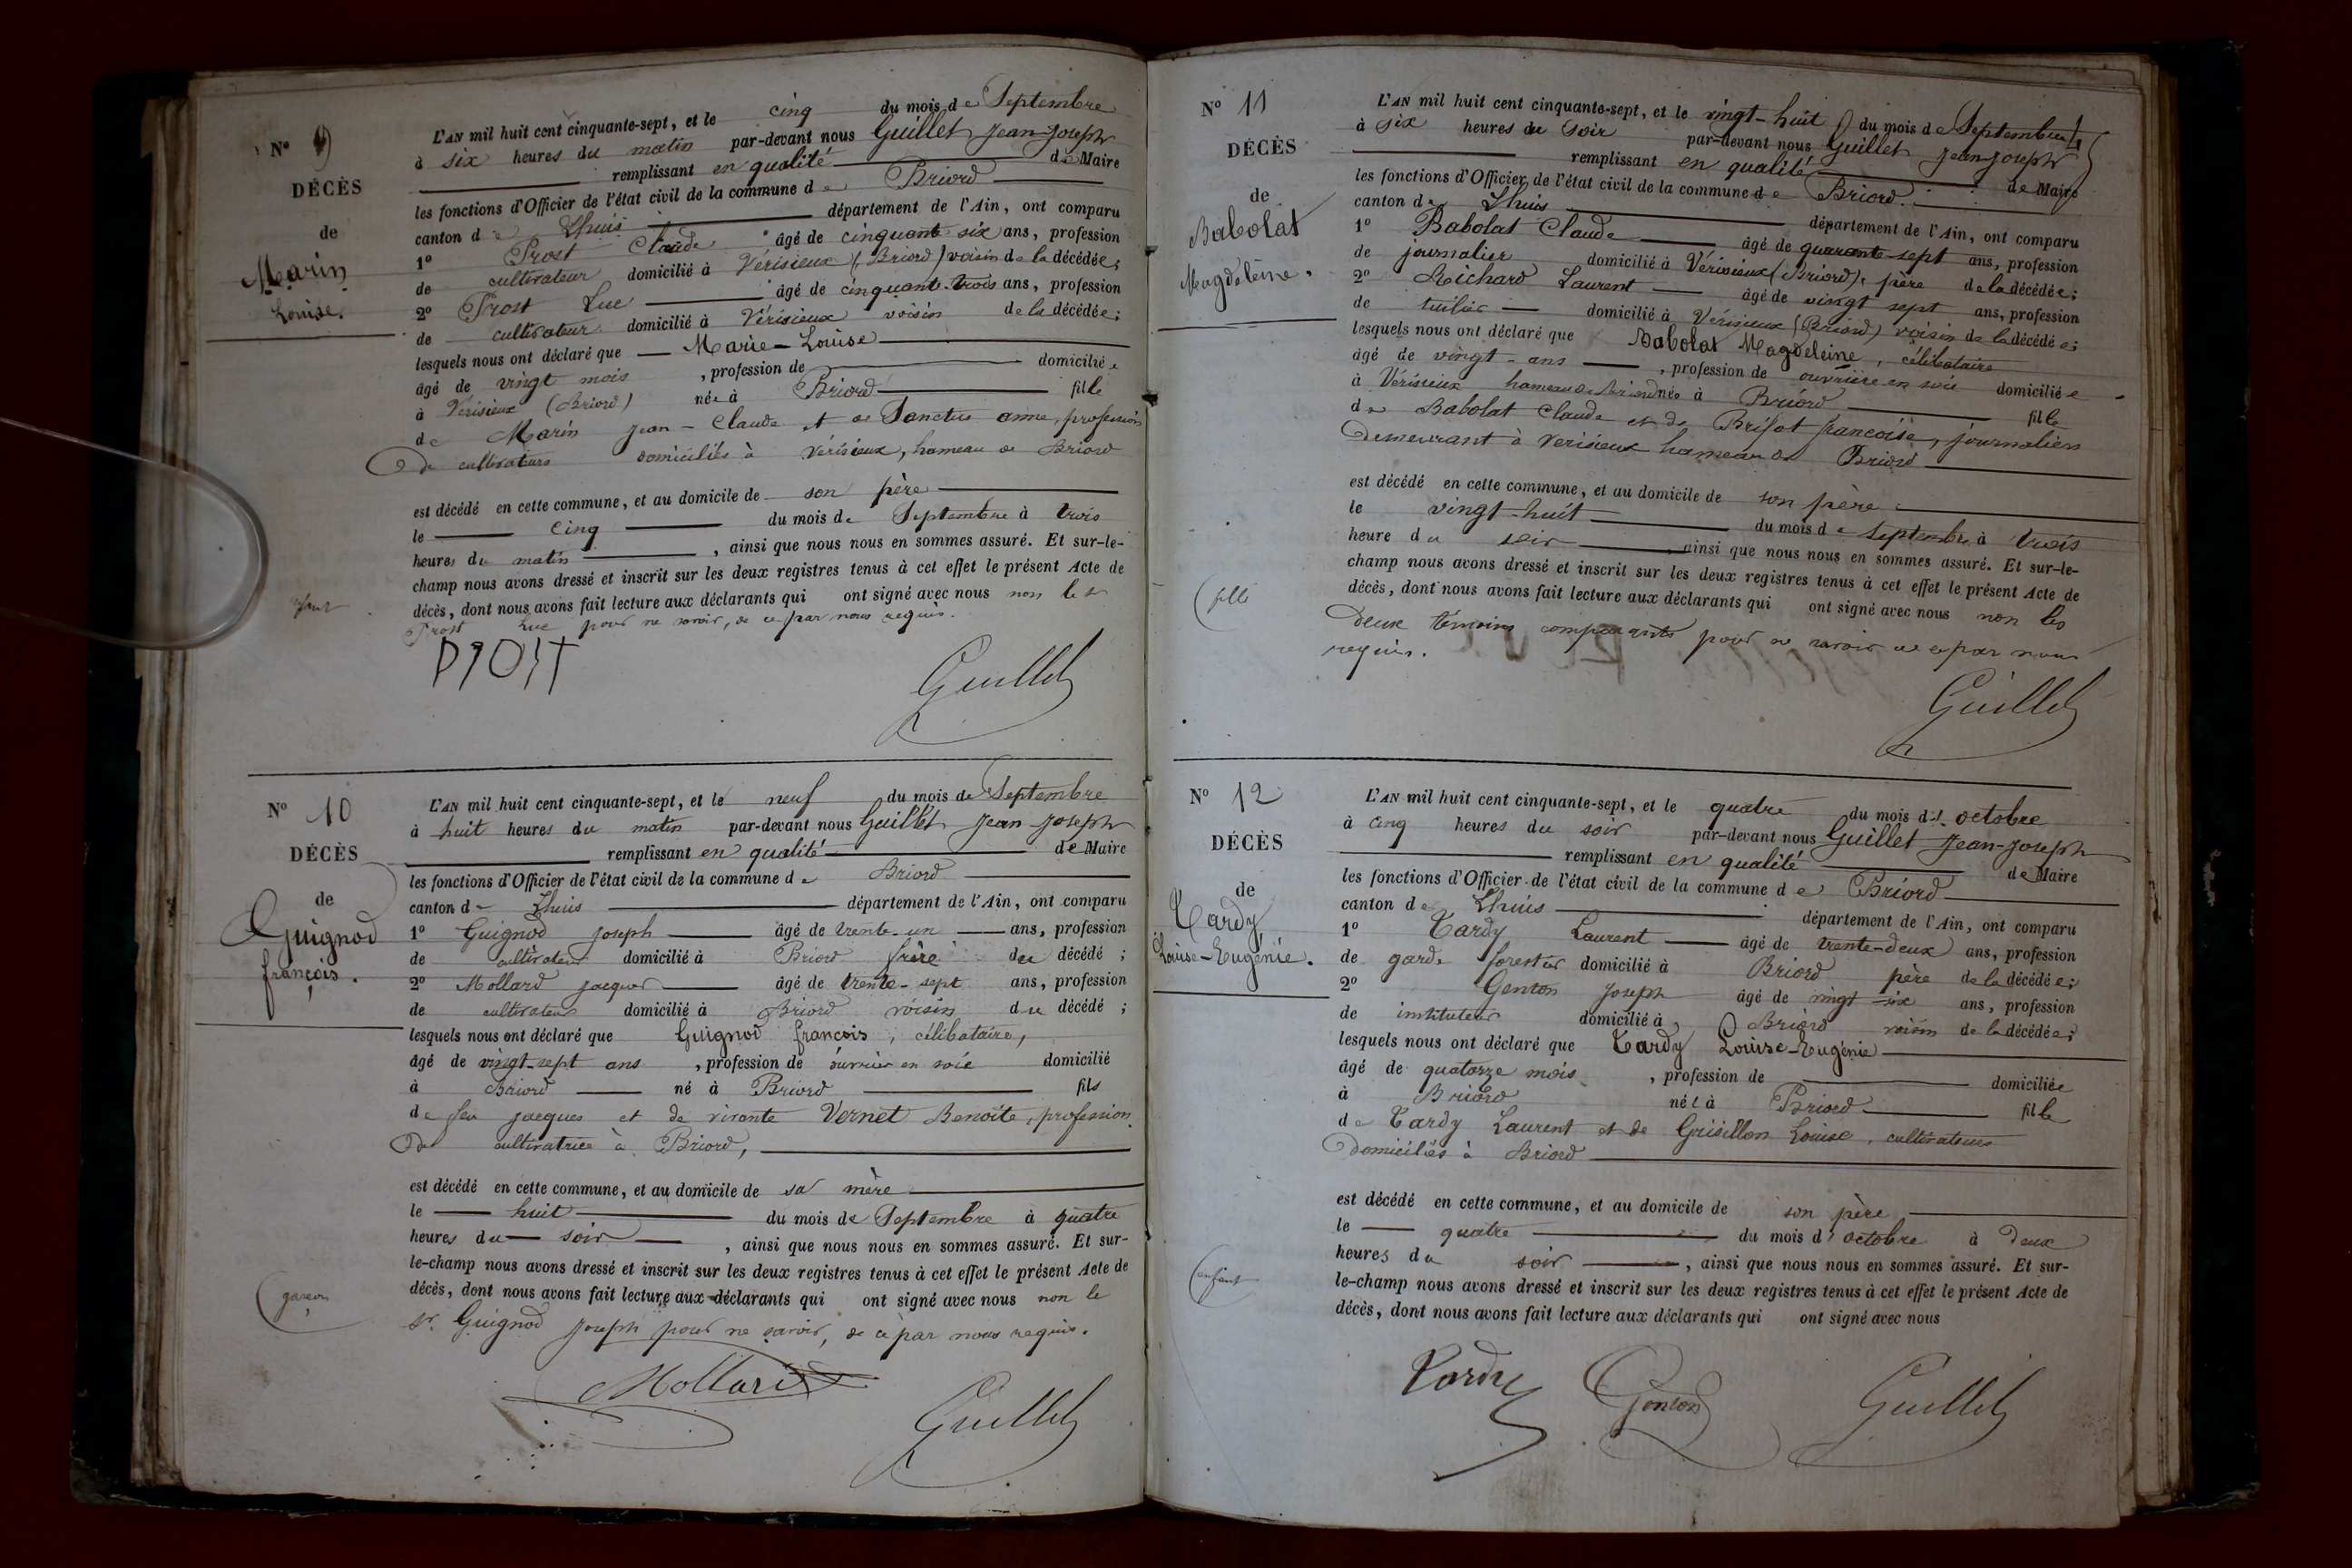 N° 9
DÉCÈS
de
Marin
Louise.
L'AN mil huit cent cinquante-sept, et le cinq du mois de Septembre
à six heures du matin par-devant nous Guillet Jean-Joseph
remplissant en qualité de Maire
les fonctions d'Officier de l'état civil de la commune de Briord
canton de Lhuis département de l'Ain, ont comparu
1° Prost Claude âgé de cinquante six ans, profession
de cultivateur domicilié à Vérisieux (Briord) voisin de la décédée;
2° Prost Luc âgé de cinquante-trois ans, profession
de cultivateur domicilié à Vérisieux voisin de la décédée;
lesquels nous ont déclaré que Marie-Louise
âgé de vingt mois, profession de domiciliée
à Vérisieux (Briord) née à Briord fille
de Marin Jean-Claude et de Sanctus anne, profession
de cultivateurs domiciliés à Vérisieux, hameau de Briord
est décédé en cette commune, et au domicile de son père
le cinq du mois de Septembre à trois
heures du matin, ainsi que nous nous en sommes assuré. Et sur-le-
champ nous avons dressé et inscrit sur les deux registres tenus à cet effet le présent Acte de
décès, dont nous avons fait lecture aux déclarants qui ont signé avec nous non le sr
Prost Luc pour ne savoir, de ce par nous requis.
enfant
PROST
Guillet
N° 10
DÉCÈS
de
Guignod
françois.
L'AN mil huit cent cinquante-sept, et le neuf du mois de Septembre
à huit heures du matin par-devant nous Guillet Jean-Joseph
remplissant en qualité de Maire
les fonctions d'Officier de l'état civil de la commune de Briord
canton de Lhuis département de l'Ain, ont comparu
1° Guignod Joseph âgé de trente-un ans, profession
de cultivateur domicilié à Briord frère du décédé;
2° Mollard Jacques âgé de trente-sept ans, profession
de cultivateur domicilié à Briord voisin du décédé;
lesquels nous ont déclaré que Guignod françois, célibataire,
âgé de vingt-sept ans, profession de ouvrier en soie domicilié
à Briord né à Briord fils
de feu Jacques et de vivante Vernet Benoite, profession
de cultivatrice à Briord,
est décédé en cette commune, et au domicile de sa mère
le huit du mois de Septembre à quatre
heures du soir, ainsi que nous nous en sommes assuré. Et sur-
le-champ nous avons dressé et inscrit sur les deux registres tenus à cet effet le présent Acte de
décès, dont nous avons fait lecture aux déclarants qui ont signé avec nous non le
sr. Guignod Joseph pour ne savoir, de ce par nous requis.
garçon
Mollard
Guillet
N° 11
DÉCÈS
de
Babolat
Magdeleine.
L'AN mil huit cent cinquante-sept, et le vingt-huit du mois de Septembre
à six heures du soir par-devant nous Guillet Jean-Joseph
remplissant en qualité de Maire
les fonctions d'Officier de l'état civil de la commune de Briord
canton de Lhuis département de l'Ain, ont comparu
1° Babolat Claude âgé de quarante-sept ans, profession
de journalier domicilié à Vérisieux (Briord), père de la décédée;
2° Richard Laurent âgé de vingt sept ans, profession
de tuilier domicilié à Vérisieux (Briord) voisin de la décédée;
lesquels nous ont déclaré que Babolat Magdeleine, célibataire
âgé de vingt-ans, profession de ouvrière en soie domiciliée
à Vérisieux hameau de Briord née à Briord fille
de Babolat Claude et de Brisot francoise, journaliers
demeurant à Verisieux hameau de Briord
est décédé en cette commune, et au domicile de son père
le vingt-huit du mois de Septembre à trois
heure du soir ainsi que nous nous en sommes assuré. Et sur-le-
champ nous avons dressé et inscrit sur les deux registres tenus à cet effet le présent Acte de
décès, dont nous avons fait lecture aux déclarants qui ont signé avec nous non les
deux témoins comparants pour ne savoir de ce par nous
requis.
fille
Guillet
N° 12
DÉCÈS
de
Tardy
Louise-Eugénie.
L'AN mil huit cent cinquante-sept, et le quatre du mois d'octobre
à cinq heures du soir par-devant nous Guillet Jean-Joseph
remplissant en qualité de Maire
les fonctions d'Officier de l'état civil de la commune de Briord
canton de Lhuis département de l'Ain, ont comparu
1° Tardy Laurent âgé de trente-deux ans, profession
de garde forestier domicilié à Briord père de la décédée;
2° Genton Joseph âgé de vingt six ans, profession
de instituteur domicilié à Briord voisin de la décédée;
lesquels nous ont déclaré que Tardy Louise-Eugénie
âgé de quatorze mois, profession de domiciliée
à Briord née à Briord fille
de Tardy Laurent et de Grisillon Louise, cultivateurs
domiciliés à Briord
est décédé en cette commune, et au domicile de son père
le quatre du mois d'octobre à deux
heures du soir, ainsi que nous nous en sommes assuré. Et sur-
le-champ nous avons dressé et inscrit sur les deux registres tenus à cet effet le présent Acte de
décès, dont nous avons fait lecture aux déclarants qui ont signé avec nous
enfant
Tardy Genton Guillet